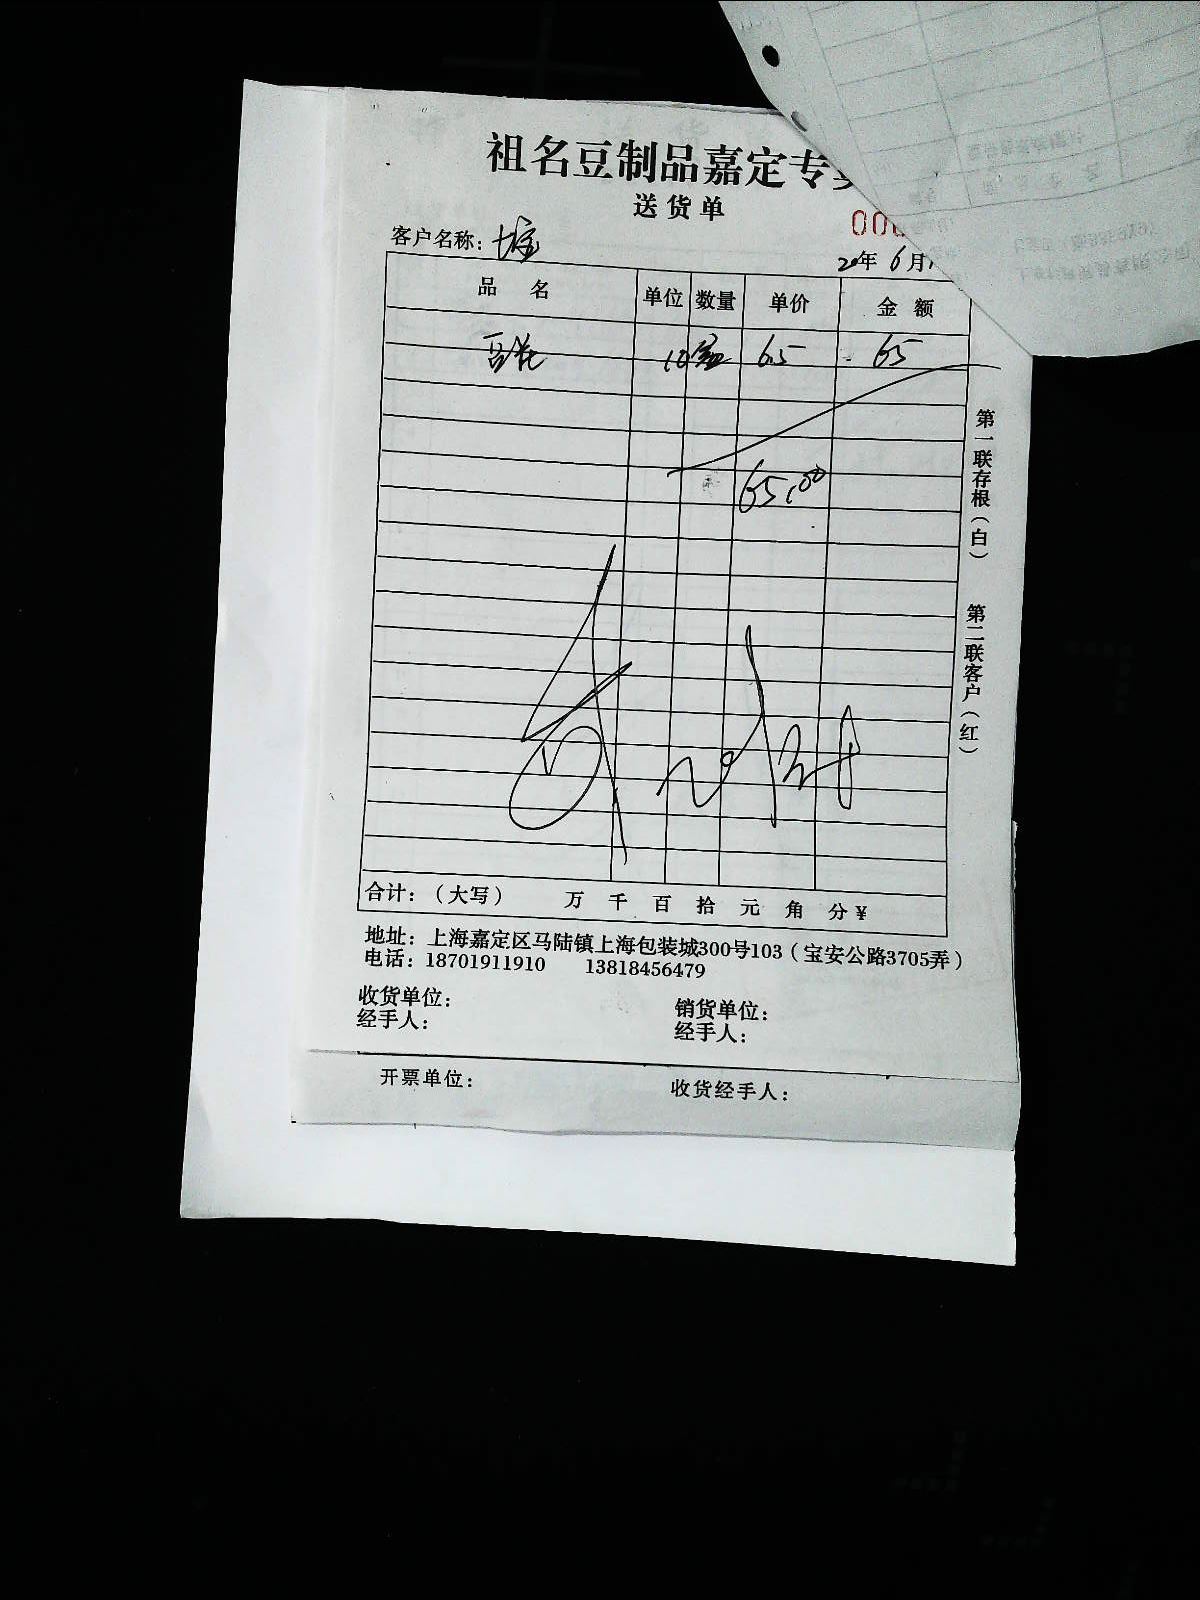 祖名豆制品嘉定专
送货单
000
客户名称：
20年6月
品 名 单位 数量 单价 金 额
豆花 10盒 6.5 65
65.00
第一联存根（白） 第二联客户（红）
合计：（大写） 万 千 百 拾 元 角 分¥
地址：上海嘉定区马陆镇上海包装城300号103（宝安公路3705弄）
电话：18701911910 13818456479
收货单位： 销货单位：
经手人： 经手人：
开票单位： 收货经手人：